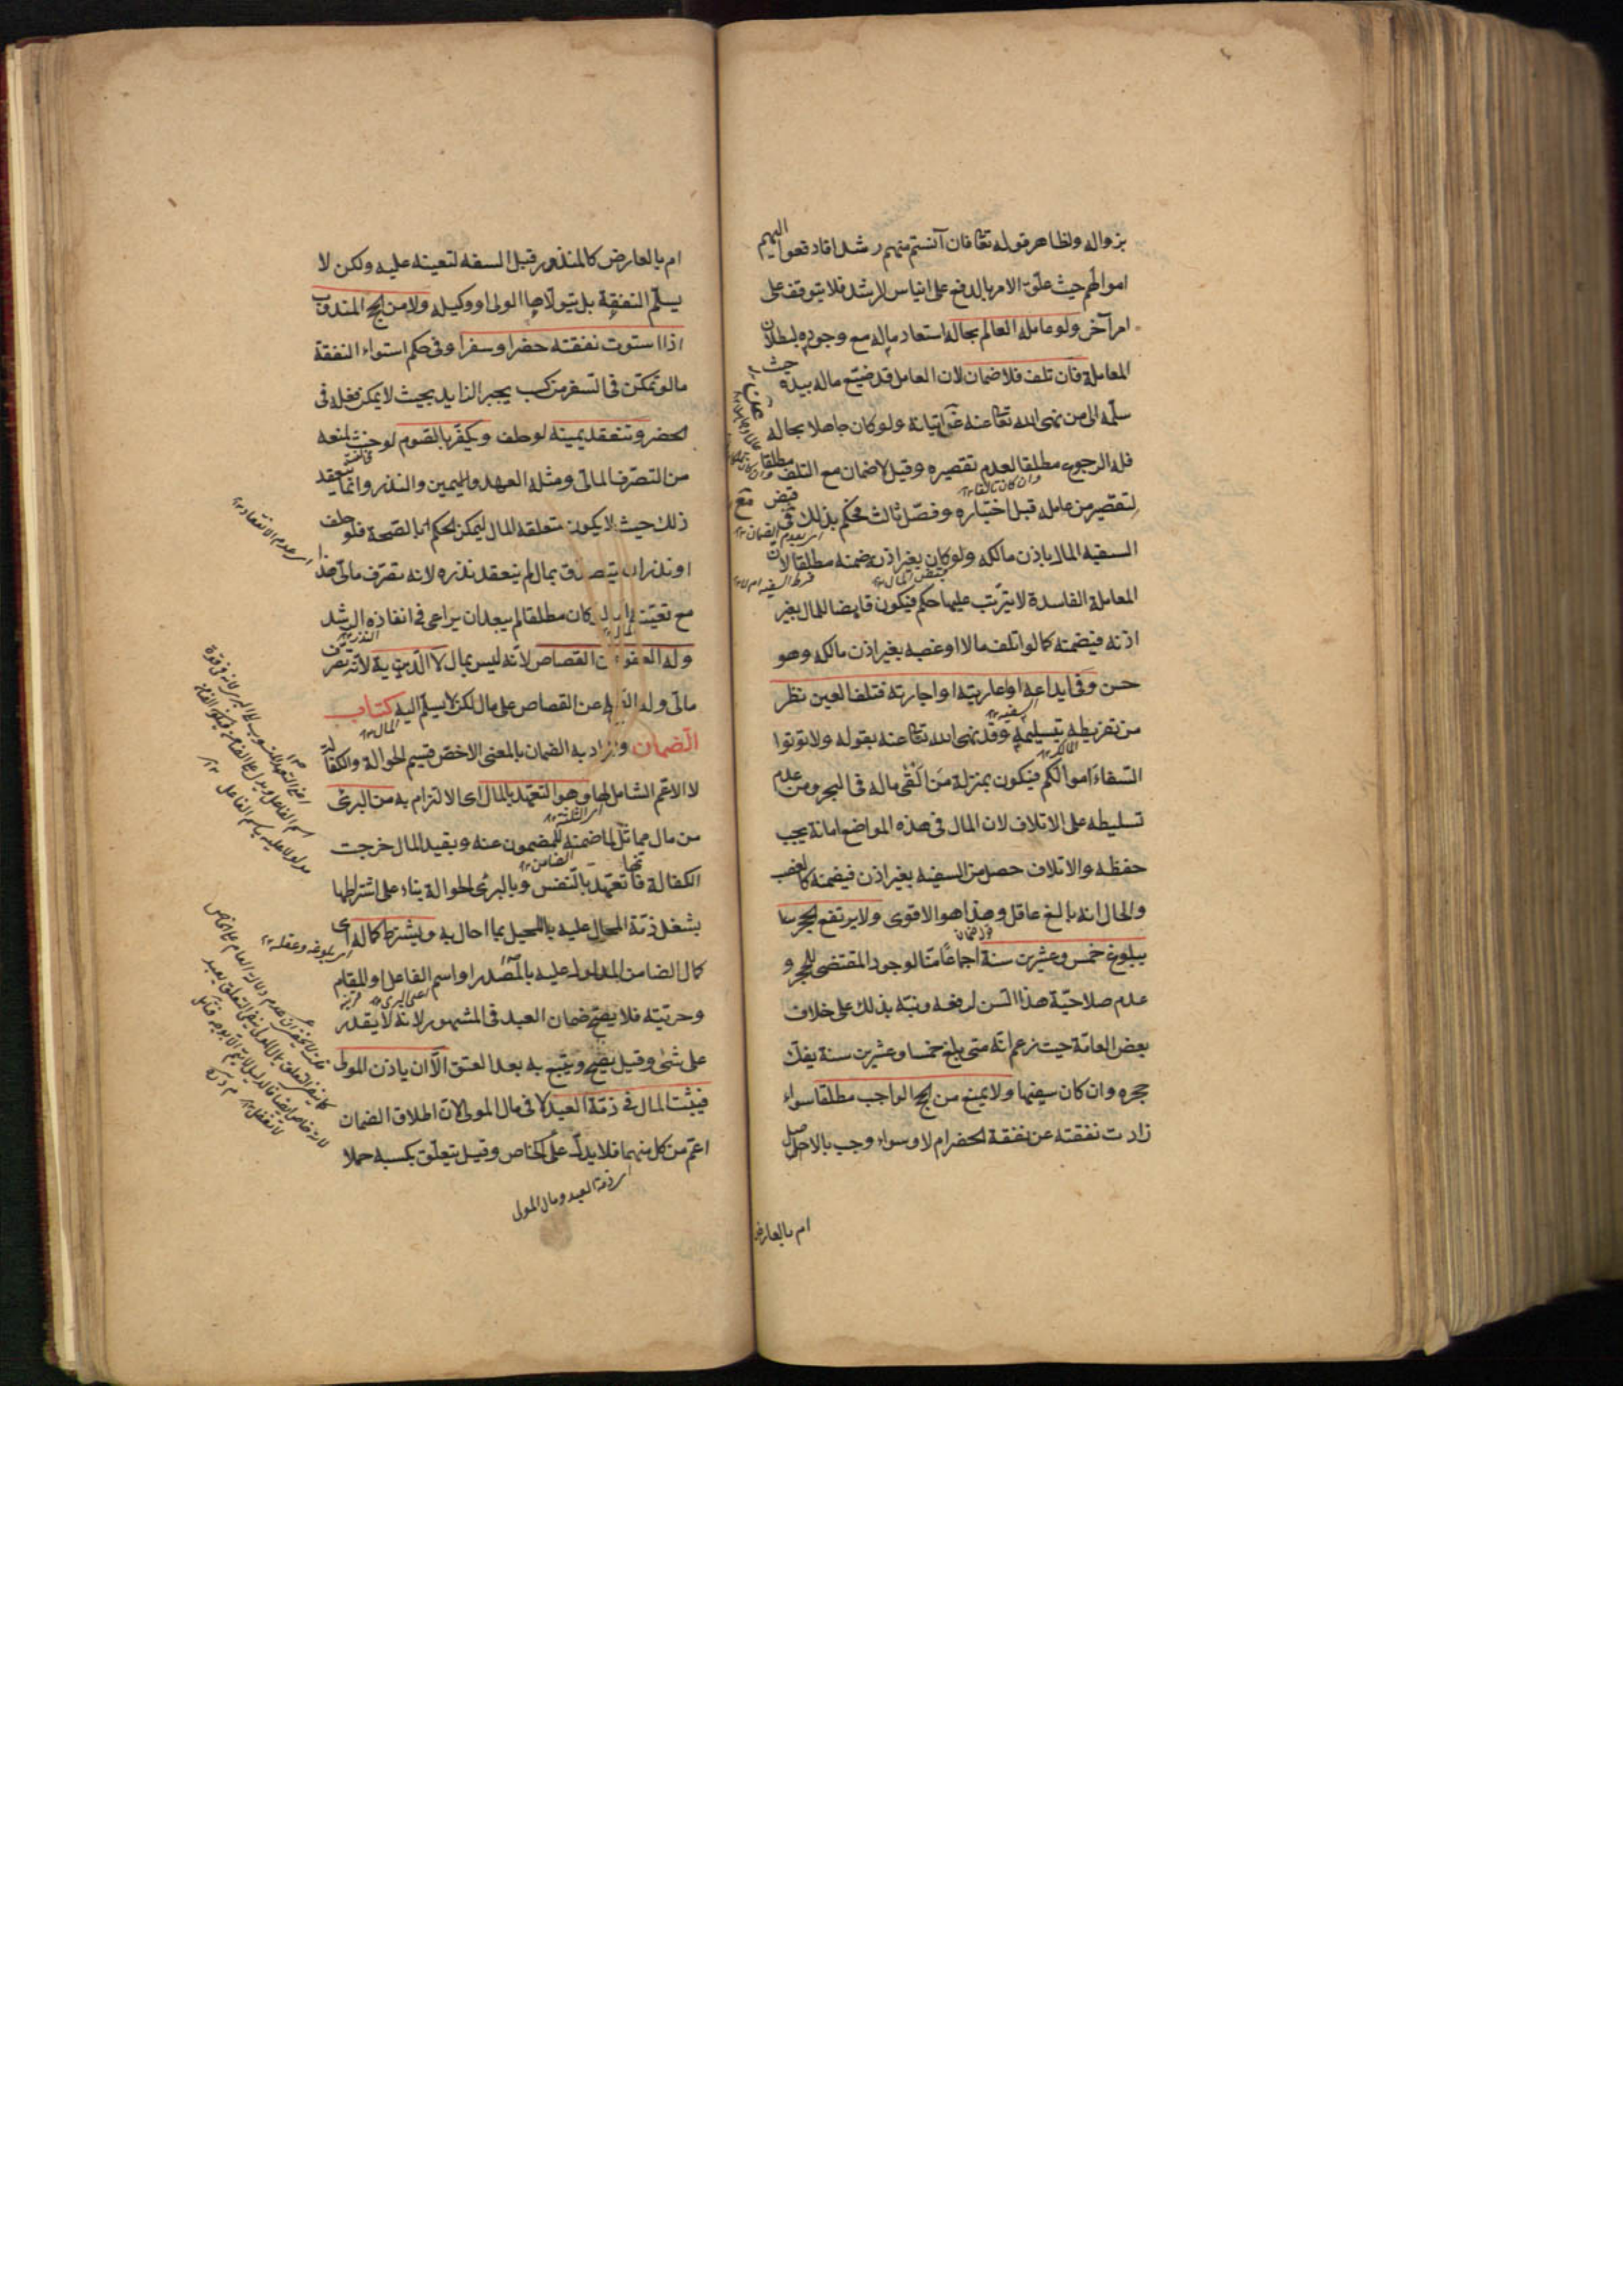 بزواله ولظاهر قوله تعا فان آنستم منهم رشدا فادفعوا اليهم
اموالهم حيث علق الامر بالدفع على ايناس الرشد فلا يتوقف على
امر آخر ولو عامله العالم بحاله استعاد ماله مع وجوده لبطلان
المعاملة فان تلف فلا ضمان لان العامل قد ضيع ماله بيده حيث
سلمه الى من نهى الله تعا عنه عن ايتيانه ولو كان جاهلا بحاله
فله الرجوع مطلقا لعدم تقصيره وقيل لا ضمان مع التلف مطلقا
وان كان تالفا
لتقصير من عامله قبل اختباره وفصل ثالث فحكم بذلك فى قبض مع
اى بعدم الضمان
السفيه المال باذن مالكه ولو كان بغير اذنه ضمنه مطلقا لان
المعاملة الفاسدة لا يترتب عليها حكم فيكون قابضا للمال بغير
اذنه فيضمنه كما لو اتلف مالا او غصبه بغير اذن مالكه وهو
حسن وفى ايداعه او اعارته او اجارته فتلف العين نظر
السفيه
من تفريطه بتسليمه وقد نهى الله تعا عنه بقوله ولا تؤتوا
المالك
السفهاء اموالكم فيكون بمنزلة من القى ماله فى البحر ومن عدم
تسليطه على الاتلاف لان المال فى هذه المواضع امانة يجب
حفظه والاتلاف حصل من السفيه بغير اذن فيضمنه كالغصب
والحال انه بالغ عاقل وهذا هو الاقوى ولا يرتفع الحجر عنه
ببلوغ خمس وعشرين سنة اجماعا منا لوجود المقتضى للحجر و
عدم صلاحية هذا السن لرفعه ونبه بذلك على خلاف
بعض العامة حيث زعم انه متى بلغ خمسا وعشرين سنة يفك
حجره وان كان سفيها ولا يمنع من الحج الواجب مطلقا سواء
زادت نفقته عن نفقة الحضر ام لا وسواء وجب بالاصل
ام بالعارض
ام بالعارض كالمنذور قبل السفه لتعينه عليه ولكن لا
يسلم النفقة بل يتولاها الولى او وكيله ولا من الحج المندوب
اذا استوت نفقته حضرا وسفرا وفى حكم استواء النفقة
ما لو تمكن فى السفر من كسب يجبر الزايد بحيث لا يمكن فعله فى
الحضر وتنعقد يمينه لو حلف ويكفر بالصوم لو حنث لمنعه
من التصرف المالى ومثله العهد واليمين والنذر وانما ينعقد
ذلك حيث لا يكون متعلقه المال ليمكن الحكم بالصحة فلو حلف
اى عدم الانعقاد
او نذر ان يتصدق بمال لم ينعقد نذره لانه تصرف مالى هذا
مع تعينه ولو كان مطلقا لم يبعد ان يراعى فى انفاذه الرشد
وله العفو عن القصاص لانه ليس بمال لا الدية لانه تصرف
مالى وله الصلح عن القصاص على مال لكن لا يسلم اليه كتاب
المال
الضمان والمراد به الضمان بالمعنى الاخص قسيم الحوالة والكفالة
لا الاعم الشامل لها وهو التعهد بالمال اى الالتزام به من البرئ
من مال مماثل لما ضمنه للمضمون عنه وبقيد المال خرجت
الضامن
الكفالة فانها تعهد بالنفس وبالبرئ الحوالة بناء على اشتراطها
بشغل ذمة المحال عليه بالمحيل بما احال به ويشترط كماله اى
اى بلوغه وعقله
كمال الضامن المدلول عليه بالمصدر او اسم الفاعل او المقام
وحريته فلا يصح ضمان العبد فى المشهور لانه لا يقدر
على شئ وقيل يصح ويتبع به بعد العتق الا ان ياذن المولى
فيثبت المال فى ذمة العبد لا فى مال المولى لان اطلاق الضمان
اعم من كل منهما فلا يدل على الخاص وقيل يتعلق بكسبه حملا
ذمة العبد ومال المولى